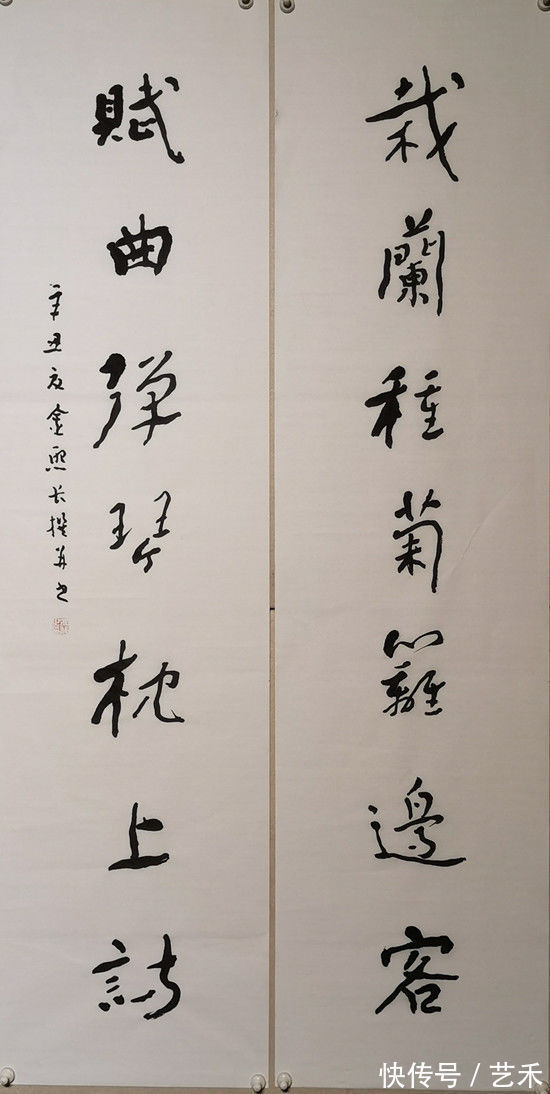 栽蘭種菊籬邊客
賦曲彈琴枕上詩
辛丑夏金熙长撰并书
快传号 / 艺禾